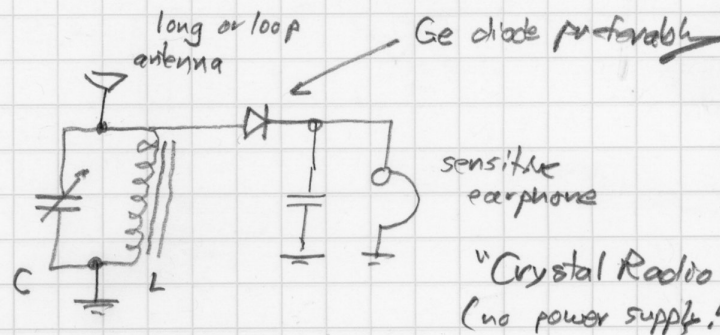 long or loop
antenna
Ge diode preferable
sensitive
earphone
C
L
"Crystal Radio
(no power supply!